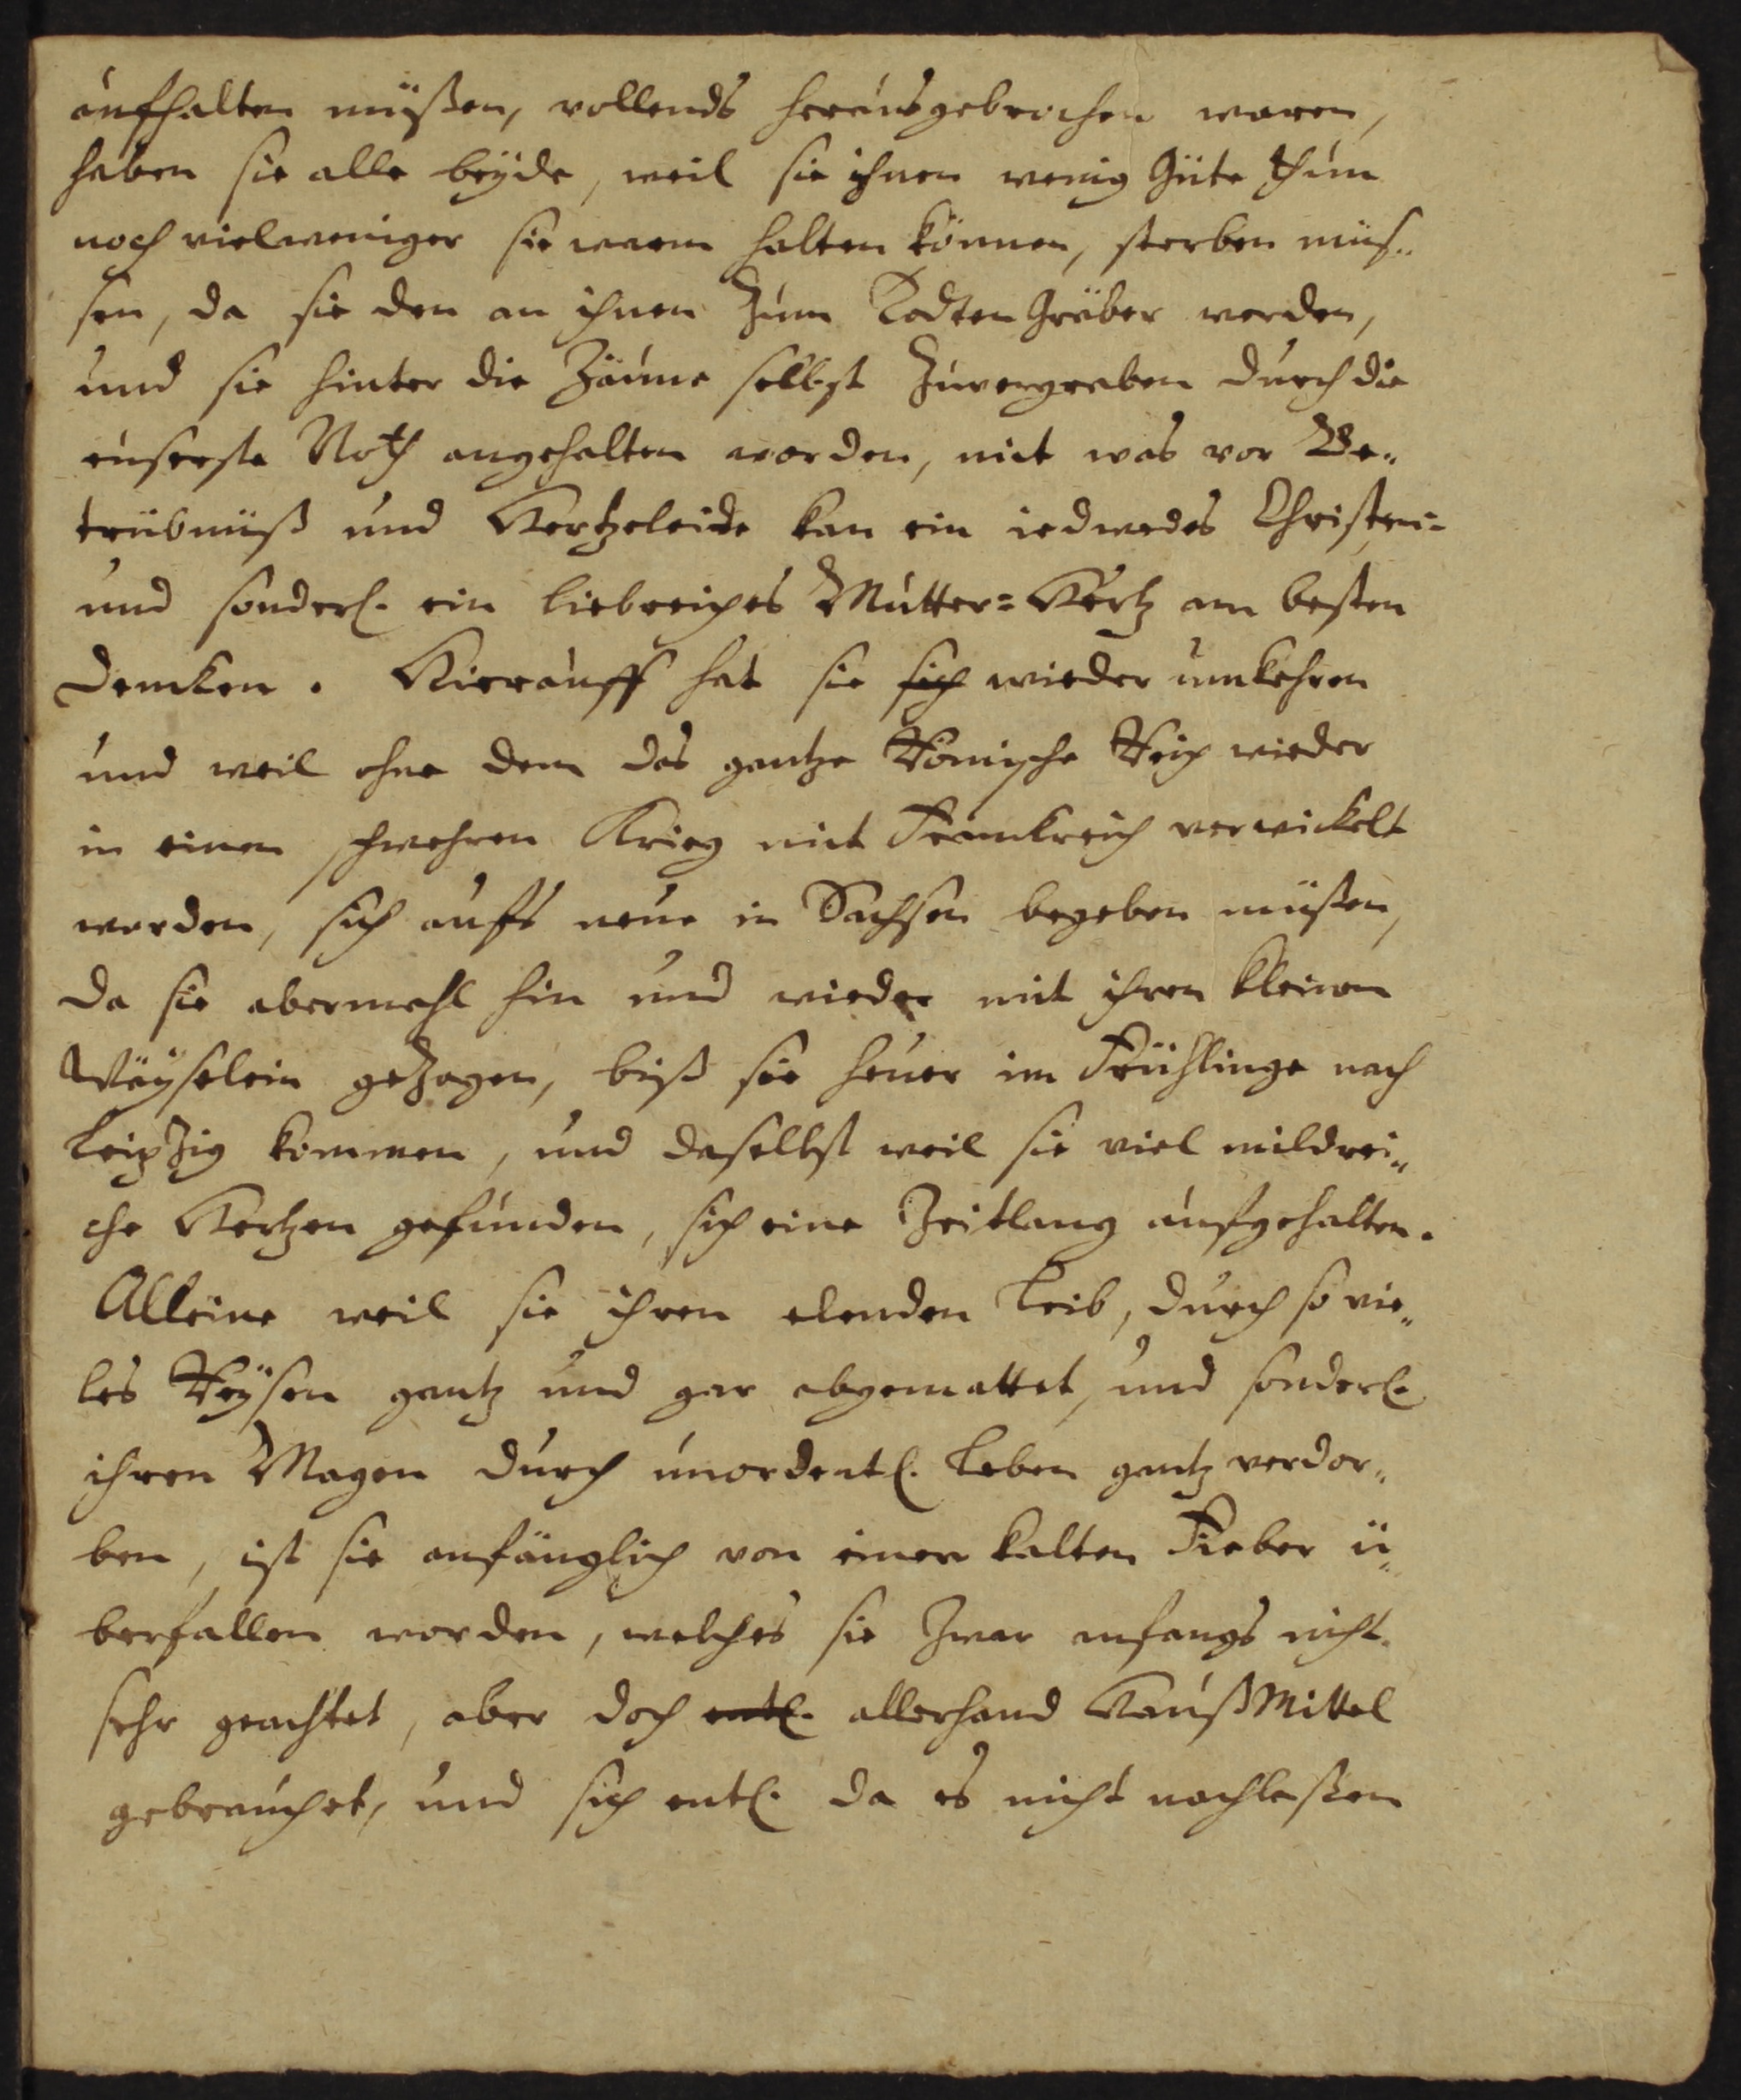 aufhalten müßen, vollends herausgebrochen waren,
haben sie alle beÿde, weil sie ihnen wenig Güte thun
noch vielweniger sie warm halten können, sterben müs„
sen, da sie den an ihnen zum Todten Gräber werden,
und sie hinter die Zäune selbst zuvergraben durch die
euserste Noth angehalten worden, mit was vor Be„
trübnüß und Hertzeleide kan ein iedwedes Christen=
und sonderl. ein liebreiches Mutter=Hertz am besten
dencken. Hierauff hat sie sich wieder umkehren
und weil ohne dem das gantze Römische Reich wieder
in einen schwehren Krieg mit Franckreich verwickelt
worden, sich aufs neue in Sachsen begeben müßen,
da sie abermahl hin und wieder mit ihren kleinen
Wäÿselein gezogen, biß sie heuer im Frühlinge nach
Leipzig kommen, und daselbst weil sie viel mildrei„
che Hertzen gefunden, sich eine Zeitlang aufgehalten.
Alleine weil sie ihren elenden Leib, durch so vie„
les Reÿsen gantz und gar abgemattet, und sonderl.
ihren Magen durch unordentl. Leben gantz verdor„
ben, ist sie anfänglich von einen kalten Fieber ü„
berfallen worden, welches sie zwar anfangs nicht
sehr geachtet, aber doch entl. allerhand Haußmittel
gebrauchet, und sich entl. da es nicht nachlaßen